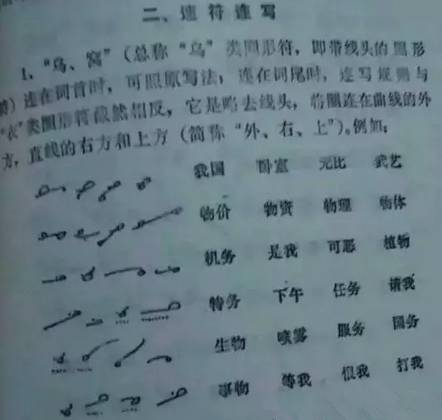 二、速符连写
1.“乌、窝”（总称“乌”类圈形符，即带线头的圈形
符）连在词首时，可照原写法，连在词尾时，连写规则与
“衣”类圈形符截然相反，它是略去线头，将圈连在曲线的外
方，直线的右方和上方（简称“外、右、上”）。例如：
我国 卧室 无比 武艺
物价 物资 物理 物体
机务 是我 可恶 植物
特务 下午 任务 请我
生物 喷雾 服务 国务
事物 等我 恨我 打我